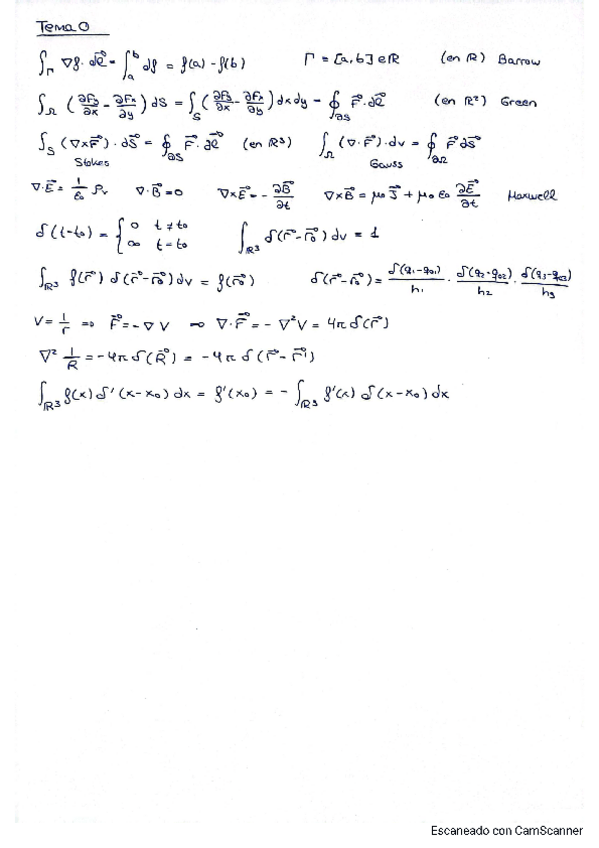 Tema 0
∫_Γ ∇f · dl⃗ = ∫_a^b df = f(a) - f(b)    Γ = [a,b] ∈ ℝ    (en ℝ) Barrow
∫_Ω (∂Fy/∂x - ∂Fx/∂y) dS = ∫_S (∂Fy/∂x - ∂Fx/∂y) dx dy = ∮_∂S F⃗ · dl⃗    (en ℝ²) Green
∫_S (∇×F⃗) · dS⃗ = ∮_∂S F⃗ · dl⃗    (en ℝ³)    ∫_Ω (∇·F⃗) · dv = ∮_∂Ω F⃗ dS⃗
Stokes    Gauss
∇·E⃗ = 1/ε₀ ρᵥ    ∇·B⃗ = 0    ∇×E⃗ = - ∂B⃗/∂t    ∇×B⃗ = μ₀ J⃗ + μ₀ ε₀ ∂E⃗/∂t    Maxwell
δ(t-t₀) = { 0  t ≠ t₀    ∫_ℝ³ δ(r⃗-r⃗₀) dv = 1
∞  t = t₀
∫_ℝ³ f(r⃗) δ(r⃗-r⃗₀) dv = f(r⃗₀)    δ(r⃗-r⃗₀) = δ(q₁-q₀₁)/h₁ · δ(q₂-q₀₂)/h₂ · δ(q₃-q₀₃)/h₃
V = 1/r ⇒ F⃗ = -∇V ⇒ ∇·F⃗ = -∇²V = 4π δ(r⃗)
∇² 1/R = -4π δ(R⃗) = -4π δ(r⃗ - r⃗')
∫_ℝ³ f(x) δ'(x-x₀) dx = f'(x₀) = - ∫_ℝ³ f'(x) δ(x-x₀) dx
Escaneado con CamScanner